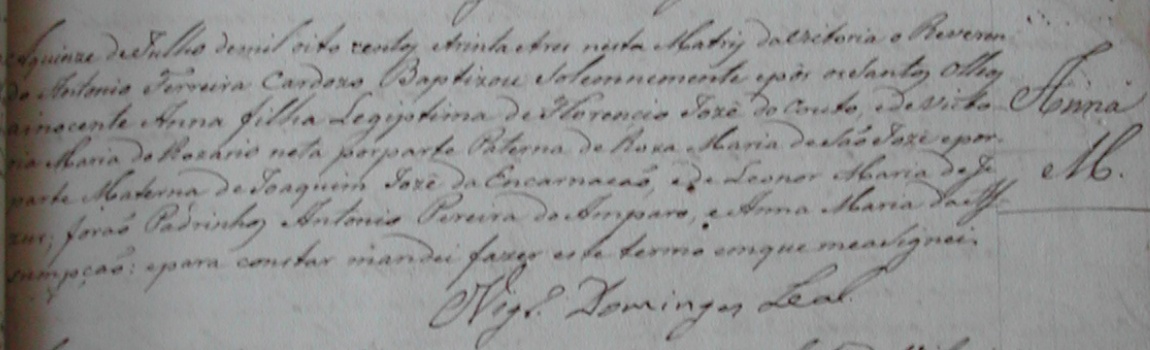 Aquinze de Julho demil oito centos etrinta etres nesta Matriz daVictoria o Reveren
do Antonio Ferreira Cardozo Baptizou Solemnemente epôs os Santos Olhos
ainocente Anna filha Legiptima de Florencio Jozé do Couto, ede Victo
ria Maria do Rozario neta porparte Paterna de Roza Maria de São Jozé epor
parte Materna de Joaquim Jozé da Encarnacaõ, ede Leonor Maria de Je
zus; foraõ Padrinhos Antonio Pereira do Amparo, e Anna Maria da Ass
sumpçaõ: epara constar mandei fazer este termo emque measignei.
Domingos Leal
Anna
M.